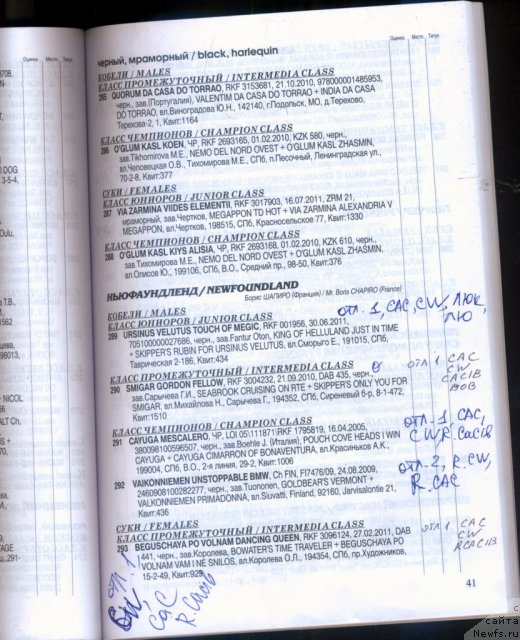 Оценка Место Титул
Оценка Место Титул
черный, мраморный / black, harlequin
КОБЕЛИ / MALES
КЛАСС ПРОМЕЖУТОЧНЫЙ / INTERMEDIA CLASS
285 QUORUM DA CASA DO TORRAO, RKF 3153681, 21.10.2010, 978000001485953,
черн., зав.(Португалия), VALENTIM DA CASA DO TORRAO + INDIA DA CASA
DO TORRAO, вл.Виноградова Ю.Н., 142140, г.Подольск, МО, д.Терехово,
Терехова-2, 1, Квит:1164
КЛАСС ЧЕМПИОНОВ / CHAMPION CLASS
286 O'GLUM KASL KOEN, ЧР, RKF 2693165, 01.02.2010, KZK 580, черн.,
зав.Tikhomirova M.E., NEMO DEL NORD OVEST + O'GLUM KASL ZHASMIN,
вл.Человецкая О.В., Тихомирова М.Е., СПб, п.Песочный, Ленинградская ул.,
70-2-8, Квит:377
СУКИ / FEMALES
КЛАСС ЮНИОРОВ / JUNIOR CLASS
287 VIA ZARMINA VIIDES ELEMENTII, RKF 3017903, 16.07.2011, ZRM 21,
мраморный, зав.Чертков, MEGAPPON TD HOT + VIA ZARMINA ALEXANDRIA V
MEGAPPON, вл.Чертков, 198515, СПб, Красносельское 77, Квит:1330
КЛАСС ЧЕМПИОНОВ / CHAMPION CLASS
288 O'GLUM KASL KIYS ALISIA, ЧР, RKF 2693168, 01.02.2010, KZK 610, черн.,
зав.Тихомирова М.Е., NEMO DEL NORD OVEST + O'GLUM KASL ZHASMIN,
вл.Олисов Ю., 199106, СПб, В.О., Средний пр., 98-50, Квит:376
НЬЮФАУНДЛЕНД / NEWFOUNDLAND
Борис ШАПИРО (Франция) / Mr. Boris CHAPIRO (France)
КОБЕЛИ / MALES
отл. 1, САС, CW, ЛЮК,
ЛЮ
КЛАСС ЮНИОРОВ / JUNIOR CLASS
289 URSINUS VELUTUS TOUCH OF MEGIC, RKF 001956, 30.06.2011,
705100000027686, черн., зав.Fantur Oton, KING OF HELLULAND JUST IN TIME
+ SKIPPER'S RUBIN FOR URSINUS VELUTUS, вл.Сморыго Е., 191015, СПб,
Таврическая 2-186, Квит:434
КЛАСС ПРОМЕЖУТОЧНЫЙ / INTERMEDIA CLASS
290 SMIGAR GORDON FELLOW, RKF 3004232, 21.09.2010, DAB 435, черн.,
зав.Сарычева Г.И., SEABROOK CRUISING ON RTE + SKIPPER'S ONLY YOU FOR
SMIGAR, вл.Михайлова Н., Сарычева Г., 194352, СПб, Сиреневый б-р, 8-1-472,
Квит:1510
ОТЛ 1 САС
CW
CACIB
BOB
КЛАСС ЧЕМПИОНОВ / CHAMPION CLASS
291 CAYUGA MESCALERO, ЧР, LOI 05\111871\RKF 1795819, 16.04.2005,
380098100596507, черн., зав.Boehle J. (Италия), POUCH COVE HEADS I WIN
CAYUGA + CAYUGA CIMARRON OF BONAVENTURA, вл.Красиньков А.К.,
199004, СПб, В.О., 2-я линия, 29-2, Квит:1006
отл. 1, САС,
CW R.Cacib
292 VAIKONNIEMEN UNSTOPPABLE BMW, Ch FIN, FI7476/09, 24.08.2009,
2460908100282277, черн., зав.Tuononen, GOLDBEAR'S VERMONT +
VALKONNIEMEN PRIMADONNA, вл.Siuvatti, Finland, 92160, Jarvisalontie 21,
Квит:436
отл. 2, R.CW,
R.CAC
СУКИ / FEMALES
КЛАСС ПРОМЕЖУТОЧНЫЙ / INTERMEDIA CLASS
293 BEGUSCHAYA PO VOLNAM DANCING QUEEN, RKF 3096124, 27.02.2011, DAB
1441, черн., зав.Королева, BOWATER'S TIME TRAVELER + BEGUSCHAYA PO
VOLNAM VAM I NE SNILOS, вл.Королева О.Л., 194354, СПб, пр.Художников,
15-2-49, Квит:929
ОТЛ 1 САС
CW
RCACIB
отл. 1
CW,
CAC
R.Cacib
41
с
сайта
Newfs.ru